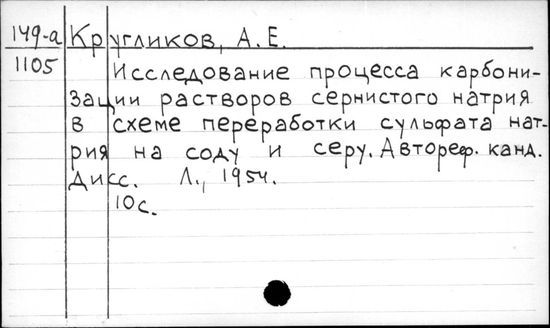 149-а Кругликов, А.Е.
1105 Исследование процесса карбони-
зации растворов сернистого натрия
в схеме переработки сульфата нат-
рия на соду и серу. Автореф. канд.
дисс. Л., 1954.
10с.